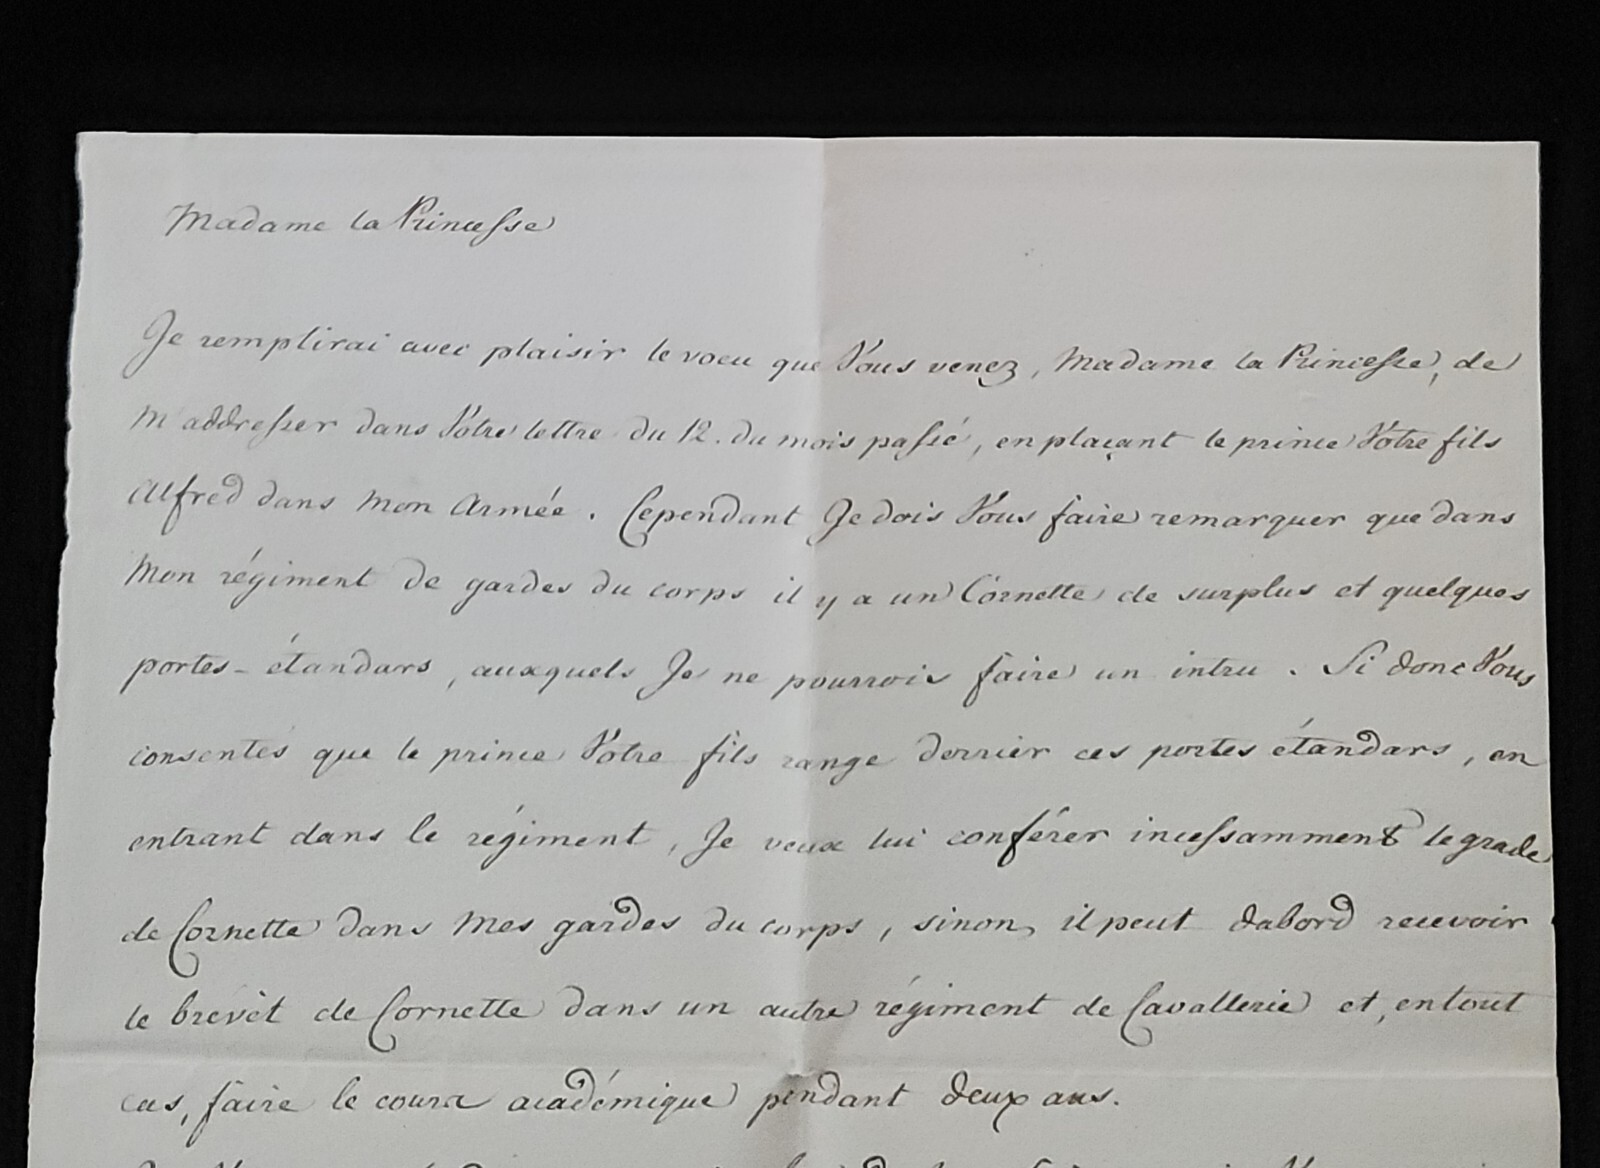 Madame la Princesse
Je remplirai avec plaisir le voeu que Vous venez, Madame la Princesse, de
M'addresser dans Votre lettre du 12. du mois passé, en plaçant le prince Votre fils
Alfred dans Mon Armée. Cependant Je dois Vous faire remarquer que dans
Mon régiment de gardes du corps il y a un Cornette de surplus et quelques
portes-étandars, auxquels Je ne pourrois faire un intru. Si donc Vous
consentés que le prince Votre fils range derrier ces portes étandars, en
entrant dans le régiment, Je veux lui conférer incessamment le grade
de Cornette dans Mes gardes du corps, sinon, il peut dabord recevoir
le brevèt de Cornette dans un autre régiment de Cavallerie et, en tout
cas, faire le cours académique pendant deux ans.